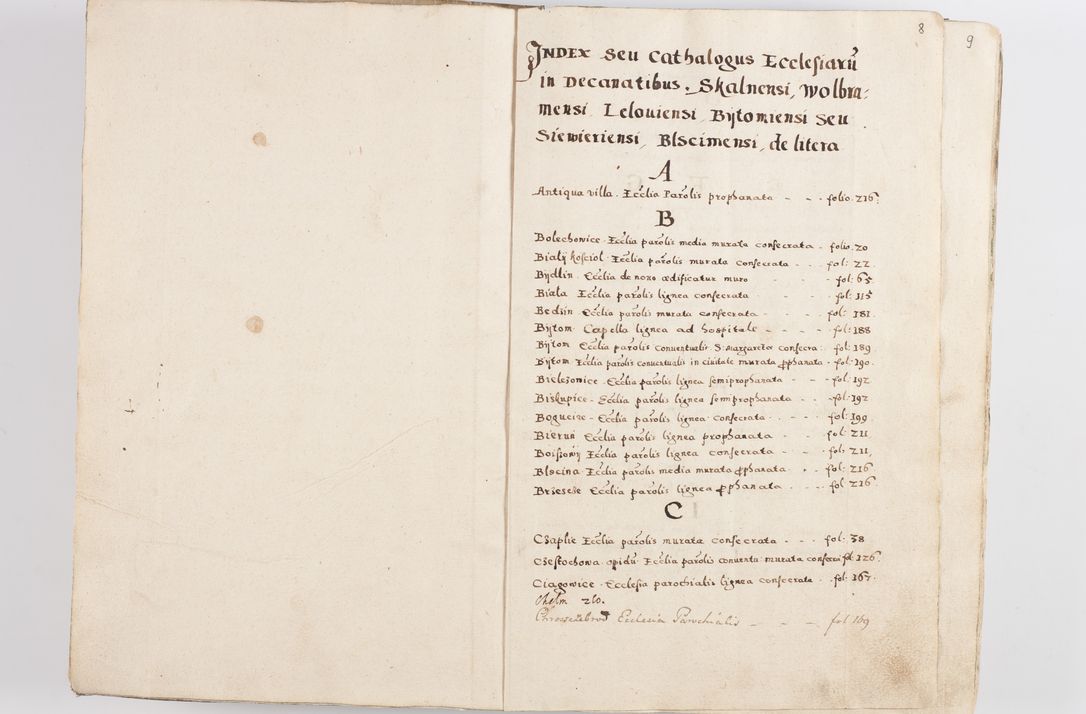 8
9
INDEX seu Cathalogus Ecclesiarũ
in Decanatibus. Skalnensi, Wolbra:
mensi Lelouiensi Bytomiensi seu
Siewieriensi, Blscimensi, de litera
A
Antiqua villa. Eccłia Parolis prophanata - - - folio. 216.
B
Bolechowice. Eccłia parolis media murata consecrata - folio. 20
Biały kosciol. Eccłia parolis murata consecrata - - - fol: 22.
Bydlin. Eccłia de nouo ædificatur muro - - fol: 65.
Biala Eccłia parolis lignea consecrata - - fol: 115
Bedzin. Eccłia parolis murata consecrata - - fol: 181.
Bytom Capella lignea ad hospitale - - - fol: 188
Bytom Eccłia parolis conuentualis S: Margaretæ consecra: fol: 189
Bytom Eccłia parolis conuentualis in ciuitate murata pphanata. fol: 190.
Bielszowice. Eccłia parolis lignea semiprophanata - - fol: 192
Biskupice - Eccłia parolis lignea semiprophanata - - fol: 192
Bogucice - Eccłia parolis lignea consecrata - - fol: 199
Bieruń Eccłia parolis lignea prophanata - - - fol: 211
Boiszowy Eccłia parolis lignea consecrata - - fol: 211,
Blscina Eccłia parolis media murata pphanata - - fol: 216
Brzescze Eccłia parolis lignea pphanata - - - fol: 216
C
Czaple Eccłia parolis murata consecrata - - fol: 38
Czestochowa opidũ Eccłia parolis conuentu murata consecra fol: 126.
Ciagowice - Ecclesia parochialis lignea consecrata - fol: 167.
Chelm 210.
Chroszczebrod Ecclesia Parochialis - - - fol 169